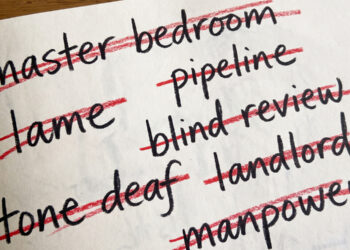 master bedroom
pipeline
lame
blind review
tone deaf
landlord
manpower